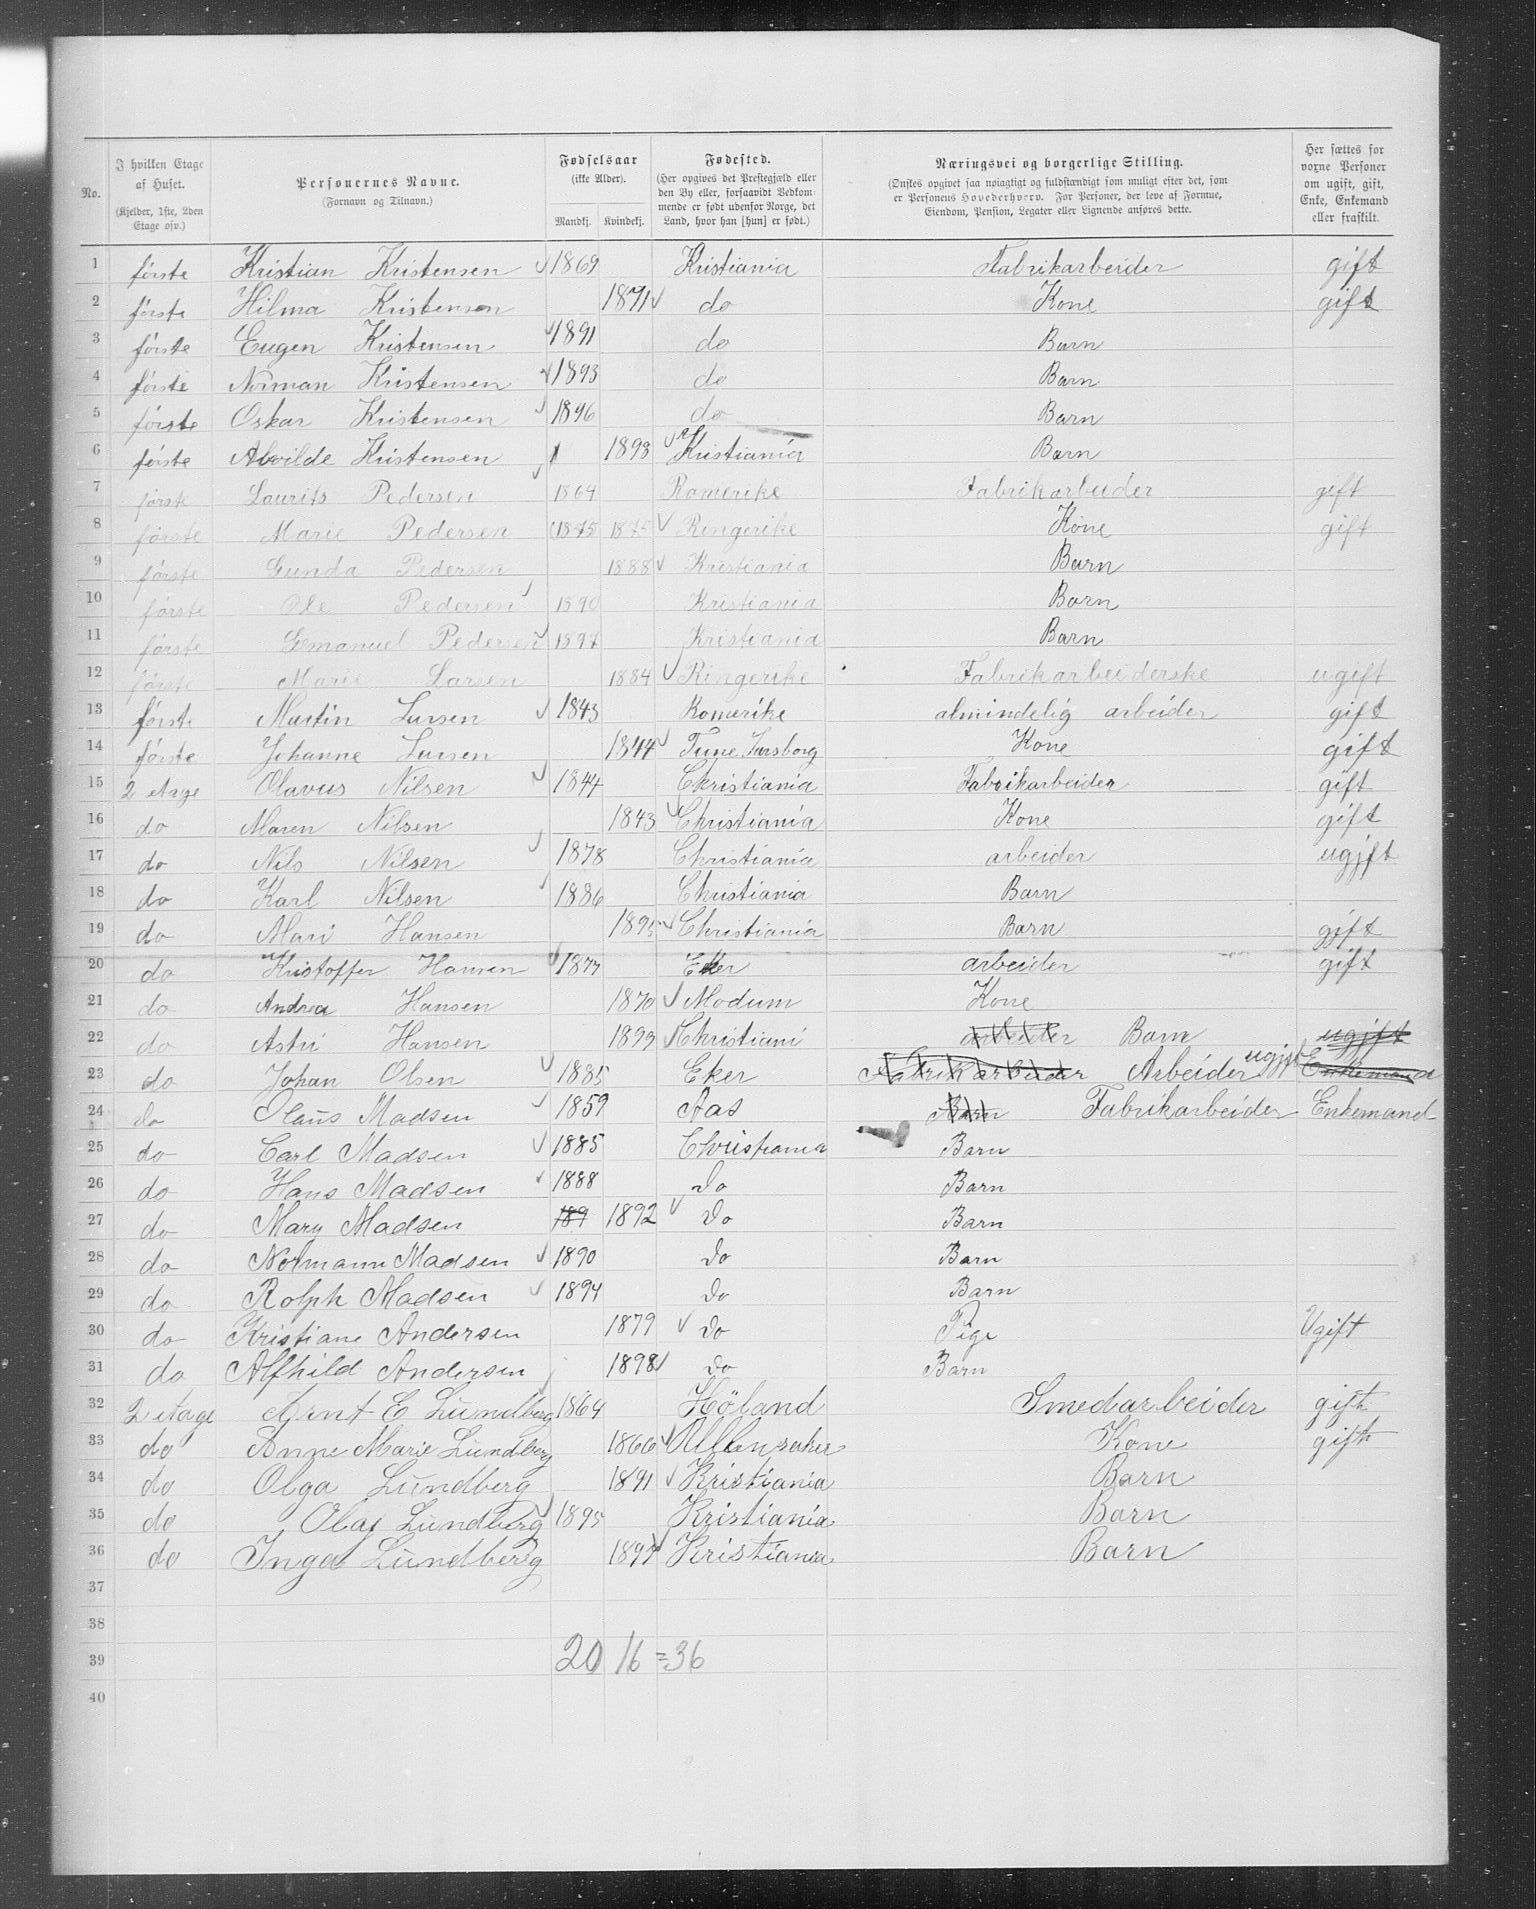 No. I hvilken Etage af Huset. (Kjelder, 1ste, 2den Etage osv.) Personernes Navne. (Fornavn og Tilnavn.) Fødselsaar (ikke Alder). Mandkj. Kvindekj. Fødested. (Her opgives det Prestegjæld eller den By eller, forsaavidt Vedkommende er født udenfor Norge, det Land, hvor han [hun] er født.) Næringsvei og borgerlige Stilling. (Ønskes opgivet saa nøiagtigt og fuldstændigt som muligt efter det, som er Personens Hovederhverv. For Personer, der leve af Formue, Eiendom, Pension, Legater eller Lignende anføres dette. Her sættes for vorne Personer om ugift, gift, Enke, Enkemand eller fraskilt.
1 første Kristian Kristensen 1869 Kristiania Fabrikarbeider gift
2 første Hilma Kristensen 1871 do Kone gift
3 første Eugen Kristensen 1891 do Barn
4 første Norman Kristensen 1893 do Barn
5 første Oskar Kristensen 1896 do Barn
6 første Alvilde Kristensen 1 1898 Kristiania Barn
7 første Laurits Pedersen 1864 Romerike Fabrikarbeider gift
8 første Marie Pedersen 1875 1875 Ringerike Kone gift
9 første Gunda Pedersen 1888 Kristiania Barn
10 første Ole Pedersen 1890 Kristiania Barn
11 første Pedersen 1897 Kristiania Barn
12 første Marie Larsen 1884 Ringerike Fabrikarbeiderske ugift
13 første Martin Larsen 1843 Romerike almindelig arbeider gift
14 første Johanne Larsen 1844 Tune Sarsborg Kone gift
15 2 etage Olavus Nilsen 1844 Christiania Fabrikarbeider gift
16 do Maren Nilsen 1843 Christiania Kone gift
17 do Nils Nilsen 1878 Christiania arbeider ugift
18 do Karl Nilsen 1886 Christiania Barn
19 do Mari Hansen 1895 Christiania Barn gift
20 do Kristoffer Hansen 1877 Eker arbeider gift
21 do Andrea Hansen 1870 Modum Kone
22 do Astri Hansen 1899 Christiani arbeider Barn ugift
23 do Johan Olsen 1885 Eker Fabrikarbeider Arbeider ugift Enkemand
24 do Claus Madsen 1859 Aas Barn Fabrikarbeider Enkemand
25 do Carl Madsen 1885 Christiania Barn
26 do Hans Madsen 1888 Do Barn
27 do Mary Madsen 189 1892 Do Barn
28 do Normann Madsen 1890 Do Barn
29 do Rolph Madsen 1894 Do Barn
30 do Kristiane Andersen 1879 Do Pige Ugift
31 do Alfhild Andersen 1898 Do Barn
32 2 etage Arnt E Lundberg 1864 Höland Smedarbeider gift
33 do Anne Marie Lundberg 1866 Ullensaker Kone gift
34 do Olga Lundberg 1891 Kristiania Barn
35 do Olaf Lundberg 1895 Kristiania Barn
36 do Inga Lundberg 1897 Kristiania Barn
37
38
39 20 16 = 36
40